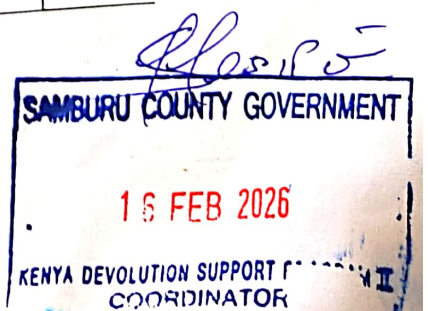 SAMBURU COUNTY GOVERNMENT
16 FEB 2026
KENYA DEVOLUTION SUPPORT II
COORDINATOR